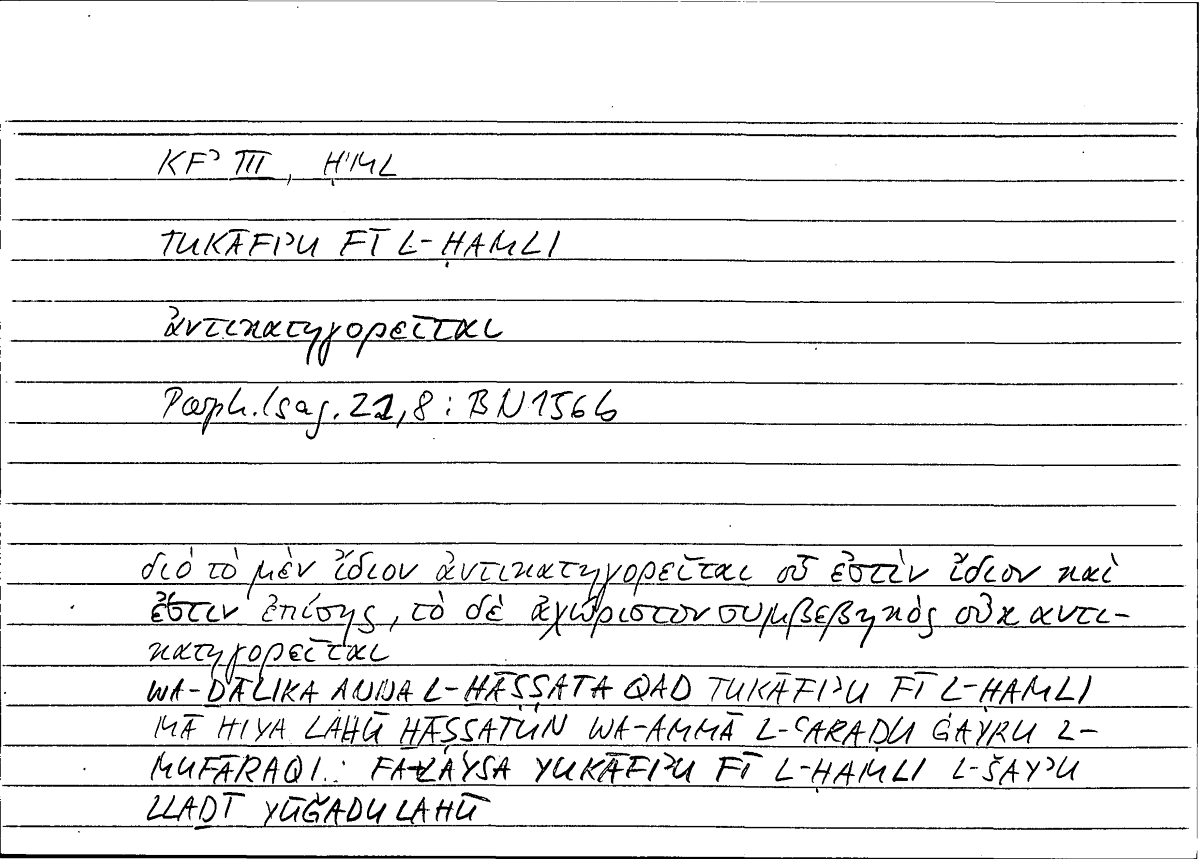 KFʾ III, ḤML
TUKĀFIʾU FĪ L-ḤAMLI
ἀντικατηγορεῖται
Porph. Isag. 22,8 : BN 156b
διὸ τὸ μὲν ἴδιον ἀντικατηγορεῖται οὗ ἐστὶν ἴδιον καὶ
ἔστιν ἐπίσης, τὸ δὲ ἀχώριστον συμβεβηκὸς οὐκ αντι-
κατηγορεῖται
WA-ḎĀLIKA ANNA L-ḪĀṢṢATA QAD TUKĀFIʾU FĪ L-ḤAMLI
MĀ HIYA LAHŪ ḪĀṢṢATUN WA-AMMĀ L-ʿARAḌU ĠAYRU L-
MUFĀRAQI.: FA-LAYSA YUKĀFIʾU FĪ L-ḤAMLI L-ŠAYʾU
LLAḎĪ YŪǦADU LAHŪ